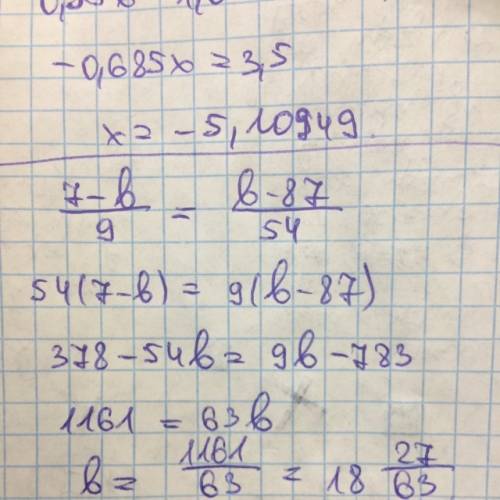 -0,685x = 3,5
x = -5,10949
7-b/9 = b-87/54
54(7-b) = 9(b-87)
378-54b = 9b-783
1161 = 63b
b = 1161/63 = 18 27/63